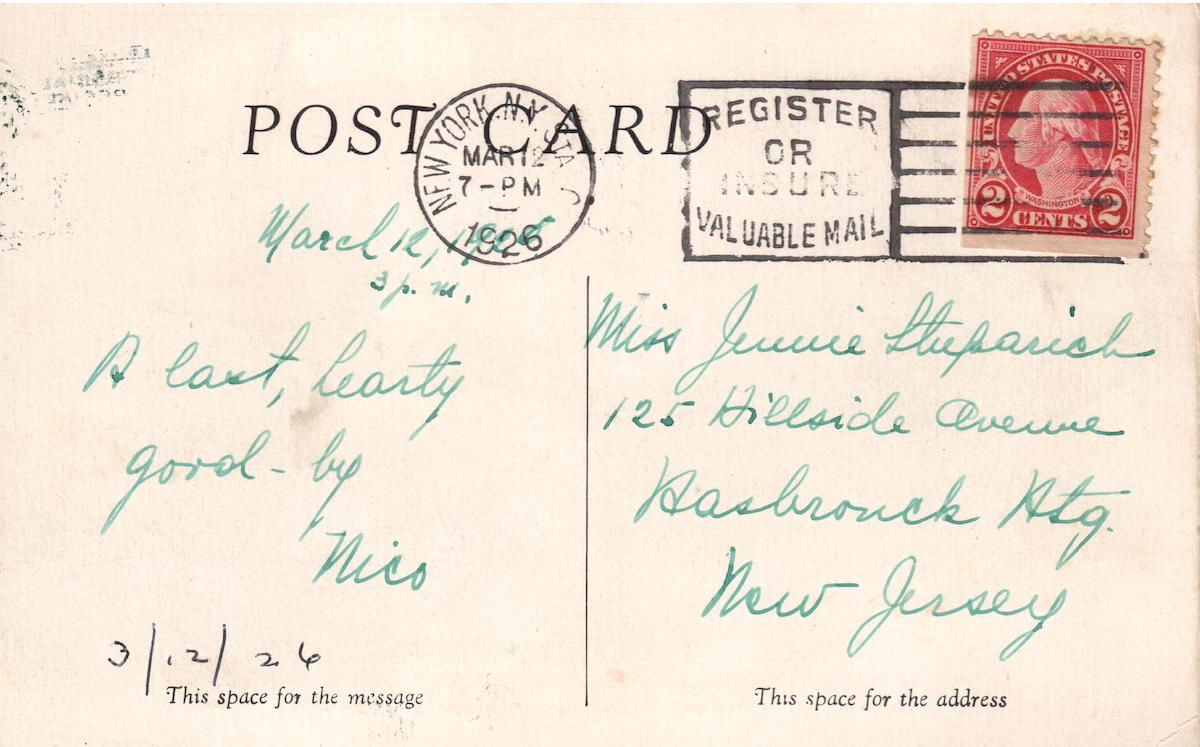 POST CARD
NEW YORK, N.Y. STA. C
MAR 12
7-PM
1926
REGISTER
OR
INSURE
VALUABLE MAIL
UNITED STATES POSTAGE
WASHINGTON
2 CENTS 2
March 12, 1926
3 p. m.
A last, hearty
good-by
Nico
3/12/26
This space for the message
Miss Jennie
125 Hillside Avenue
Hasbrouck Htg.
New Jersey
This space for the address